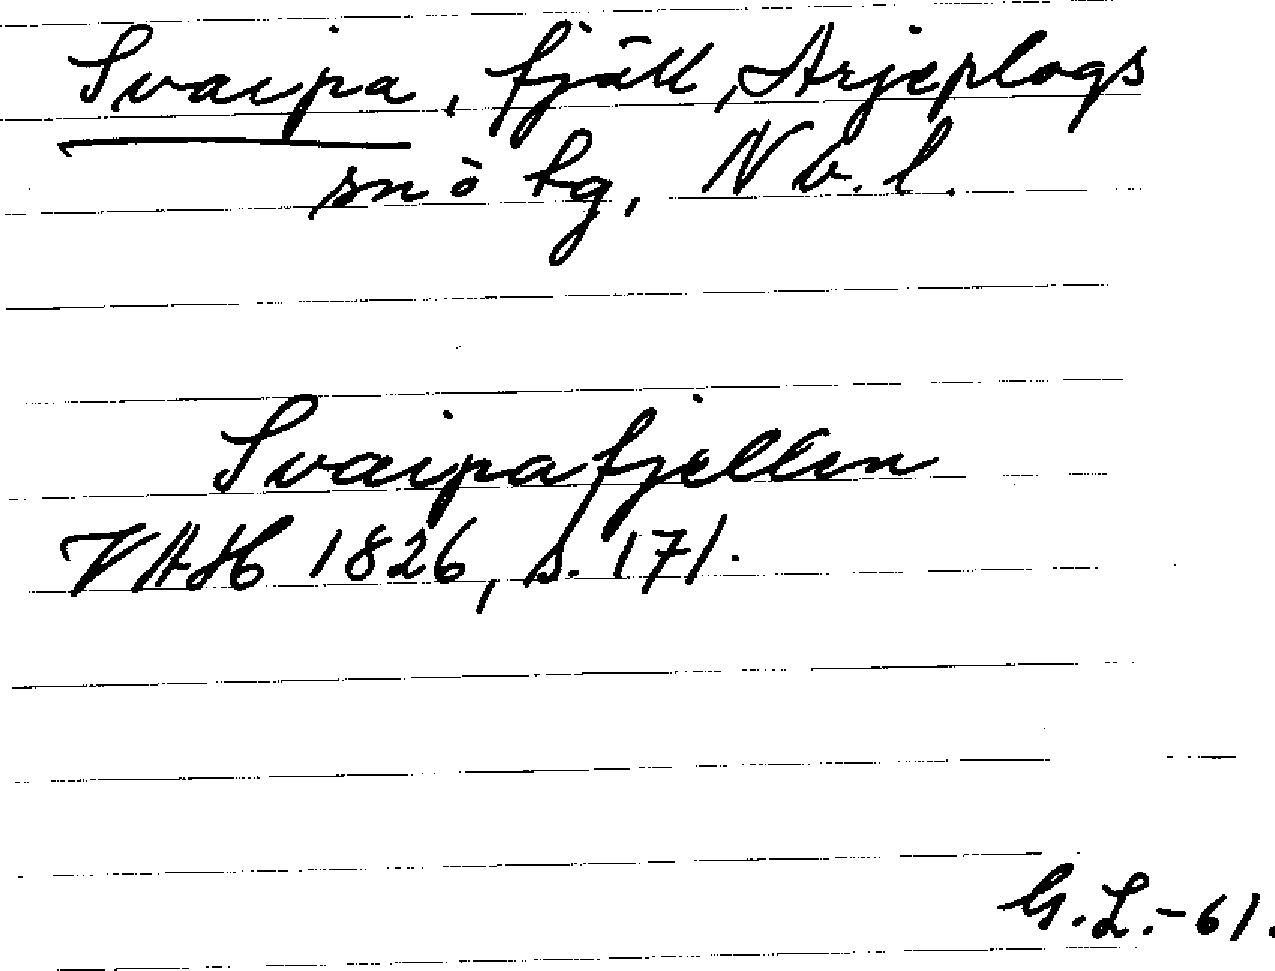 Svaipa, fjäll, Arjeplogs
sn ö tg, Nb.l.
Svaipafjellen
VAH 1826, s. 171.
G.L.-61.